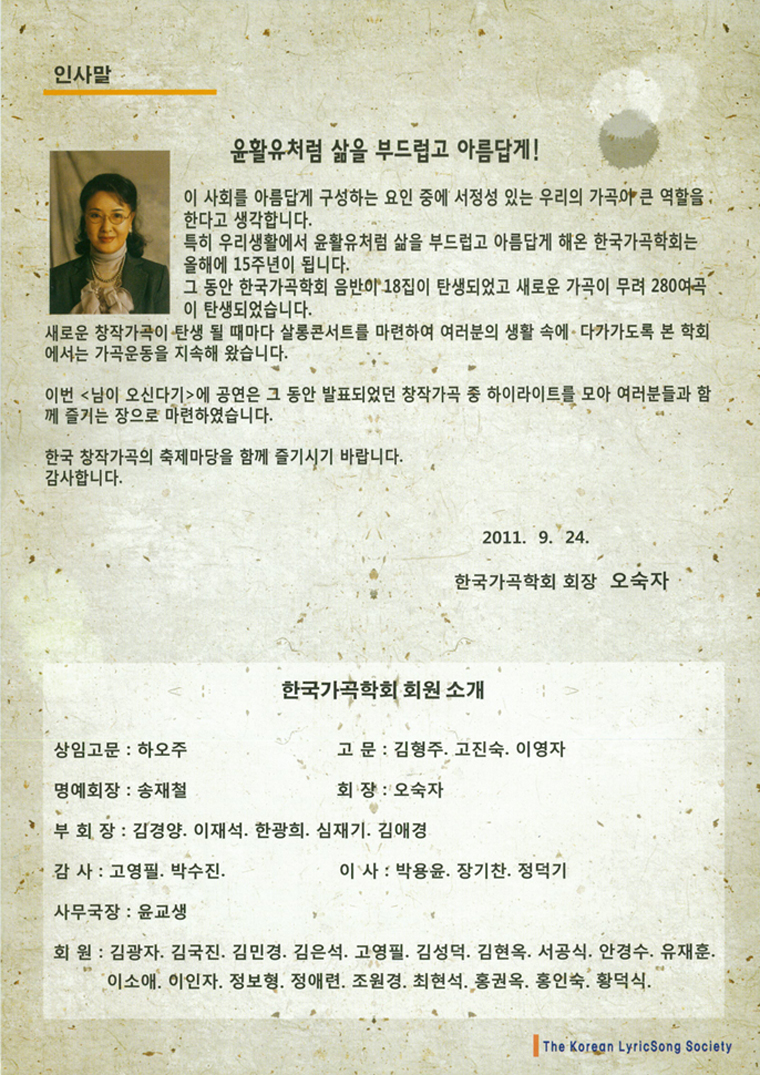 인사말
윤활유처럼 삶을 부드럽고 아름답게!
이 사회를 아름답게 구성하는 요인 중에 서정성 있는 우리의 가곡이 큰 역할을
한다고 생각합니다.
특히 우리생활에서 윤활유처럼 삶을 부드럽고 아름답게 해온 한국가곡학회는
올해에 15주년이 됩니다.
그 동안 한국가곡학회 음반이 18집이 탄생되었고 새로운 가곡이 무려 280여곡
이 탄생되었습니다.
새로운 창작가곡이 탄생 될 때마다 살롱콘서트를 마련하여 여러분의 생활 속에 다가가도록 본 학회
에서는 가곡운동을 지속해 왔습니다.
이번 <님이 오신다기>에 공연은 그 동안 발표되었던 창작가곡 중 하이라이트를 모아 여러분들과 함
께 즐기는 장으로 마련하였습니다.
한국 창작가곡의 축제마당을 함께 즐기시기 바랍니다.
감사합니다.
2011. 9. 24.
한국가곡학회 회장 오숙자
한국가곡학회 회원 소개
상임고문 : 하오주 고 문 : 김형주. 고진숙. 이영자
명예회장 : 송재철 회 장 : 오숙자
부 회 장 : 김경양. 이재석. 한광희. 심재기. 김애경
감 사 : 고영필. 박수진. 이 사 : 박용윤. 장기찬. 정덕기
사무국장 : 윤교생
회 원 : 김광자. 김국진. 김민경. 김은석. 고영필. 김성덕. 김현옥. 서공식. 안경수. 유재훈.
이소애. 이인자. 정보형. 정애련. 조원경. 최현석. 홍권옥. 홍인숙. 황덕식.
The Korean LyricSong Society